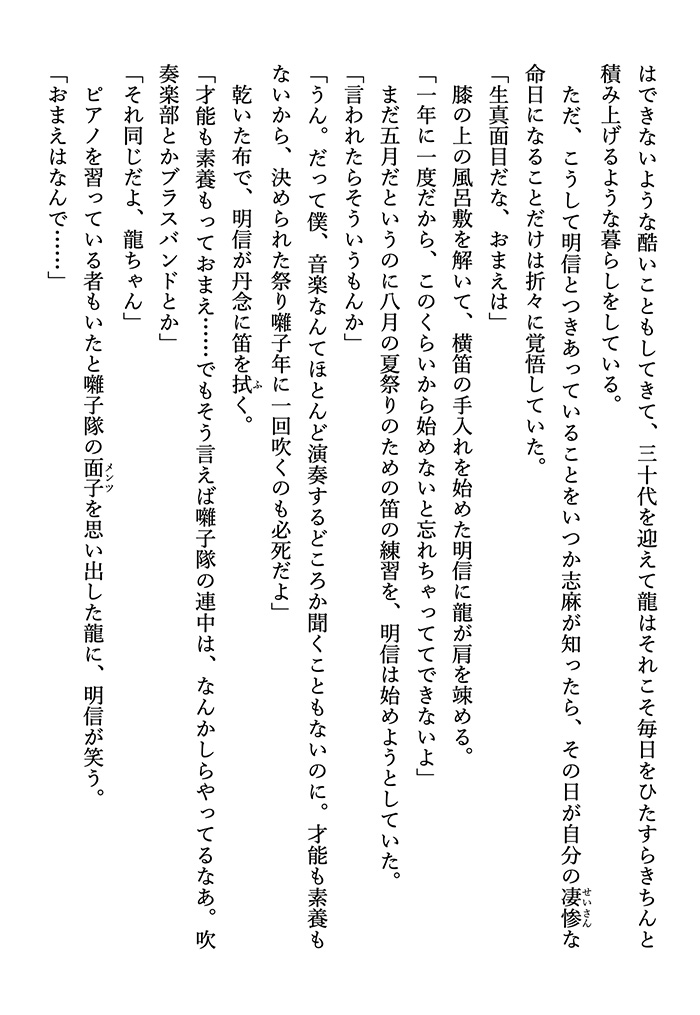 はできないような酷いこともしてきて、三十代を迎えて龍はそれこそ毎日をひたすらきちんと
積み上げるような暮らしをしている。
ただ、こうして明信とつきあっていることをいつか志麻が知ったら、その日が自分の凄惨な
せいさん
命日になることだけは折々に覚悟していた。
「生真面目だな、おまえは」
膝の上の風呂敷を解いて、横笛の手入れを始めた明信に龍が肩を竦める。
「一年に一度だから、このくらいから始めないと忘れちゃっててできないよ」
まだ五月だというのに八月の夏祭りのための笛の練習を、明信は始めようとしていた。
「言われたらそういうもんか」
「うん。だって僕、音楽なんてほとんど演奏するどころか聞くこともないのに。才能も素養も
ないから、決められた祭り囃子年に一回吹くのも必死だよ」
乾いた布で、明信が丹念に笛を拭く。
ふ
「才能も素養もっておまえ……でもそう言えば囃子隊の連中は、なんかしらやってるなあ。吹
奏楽部とかブラスバンドとか」
「それ同じだよ、龍ちゃん」
ピアノを習っている者もいたと囃子隊の面子を思い出した龍に、明信が笑う。
メンツ
「おまえはなんで……」